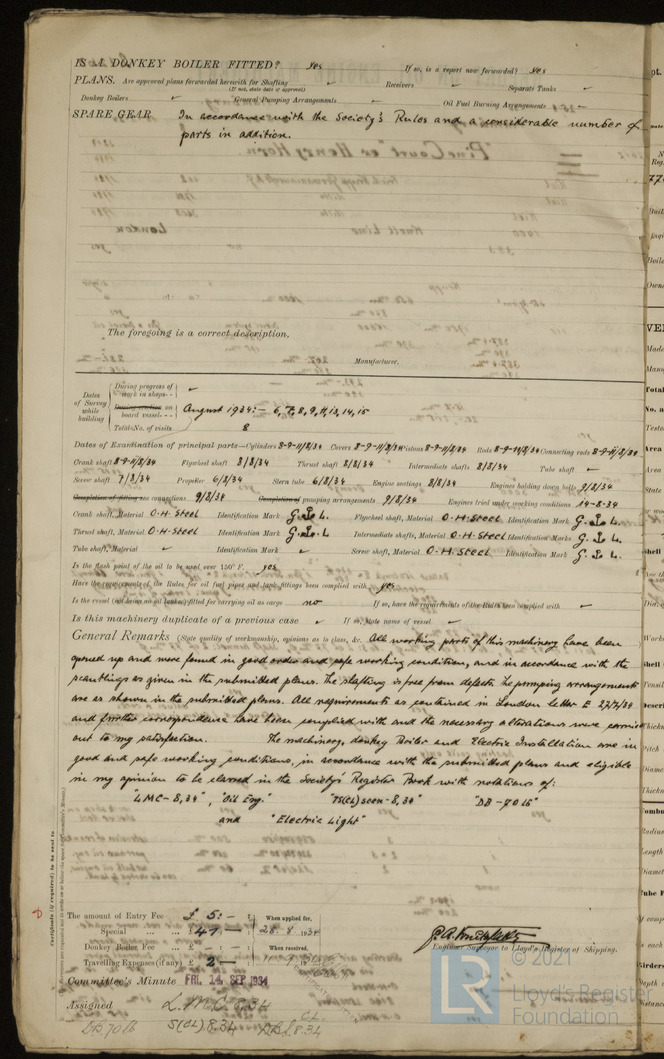 IS A DONKEY BOILER FITTED? yes If so, is a report now forwarded? yes
PLANS. Are approved plans forwarded herewith for Shafting ✓ Receivers ✓ Separate Tanks ✓
(If not, state date of approval)
Donkey Boilers ✓ General Pumping Arrangements ✓ Oil Fuel Burning Arrangements
SPARE GEAR In accordance with the Society's Rules and a considerable number of
parts in addition.
The foregoing is a correct description,
Manufacturer.
Dates of Survey while building
During progress of work in shops - - ✓
During erection on board vessel - - - August 1934:- 6, 7, 8, 9, 11, 13, 14, 15
Total No. of visits 8
Dates of Examination of principal parts—Cylinders 8-9-11/8/34 Covers 8-9-11/8/34 Pistons 8-9-11/8/34 Rods 8-9-11/8/34 Connecting rods 8-9-11/8/34
Crank shaft 8-9-11/8/34 Flywheel shaft 8/8/34 Thrust shaft 8/8/34 Intermediate shafts 8/8/34 Tube shaft ✓
Screw shaft 7/8/34 Propeller 6/8/34 Stern tube 6/8/34 Engine seatings 8/8/34 Engines holding down bolts 9/8/34
Completion of fitting sea connections 9/8/34 Completion of pumping arrangements 9/8/34 Engines tried under working conditions 14-8-34
Crank shaft, Material O.H. Steel Identification Mark G.⚓L. Flywheel shaft, Material O.H. Steel Identification Mark G.⚓L.
Thrust shaft, Material O.H. Steel Identification Mark G.⚓L Intermediate shafts, Material O.H. Steel Identification Marks G.⚓L.
Tube shaft, Material ✓ Identification Mark ✓ Screw shaft, Material O.H. Steel Identification Mark G.⚓L.
Is the flash point of the oil to be used over 150° F. yes
Have the requirements of the Rules for oil fuel pipes and tank fittings been complied with yes
Is the vessel (not being an oil tanker) fitted for carrying oil as cargo no If so, have the requirements of the Rules been complied with ✓
Is this machinery duplicate of a previous case ✓ If so, state name of vessel ✓
General Remarks (State quality of workmanship, opinions as to class, &c. All working parts of this machinery have been
opened up and were found in good order and safe working condition, and in accordance with the
scantlings as given in the submitted plans. The shafting is free from defects. The pumping arrangements
are as shown in the submitted plans. All requirements as contained in London Letter E 27/7/34
and further correspondence have been complied with and the necessary alterations were carried
out to my satisfaction. The machinery, donkey Boiler and Electric Installation are in
good and safe working conditions, in accordance with the submitted plans and eligible
in my opinion to be classed in the Society's Register Book with notations of:
"LMC-8,34", "Oil Eng." "TS(CL) seen-8,34" "DB-70 lb"
and "Electric Light"
Certificate (if required) to be sent to
The amount of Entry Fee £ 5:- : When applied for,
Special £ 47:- : 28.8.1934
Donkey Boiler Fee £ - : - : When received,
Travelling Expenses (if any) £ 2:-
Engineer Surveyor to Lloyd's Register of Shipping.
Committee's Minute FRI. 14 SEP 1934
Assigned L.M.C. 8.34
DB 70 lb S(CL) 8.34
© 2021
Lloyd's Register
Foundation
LR